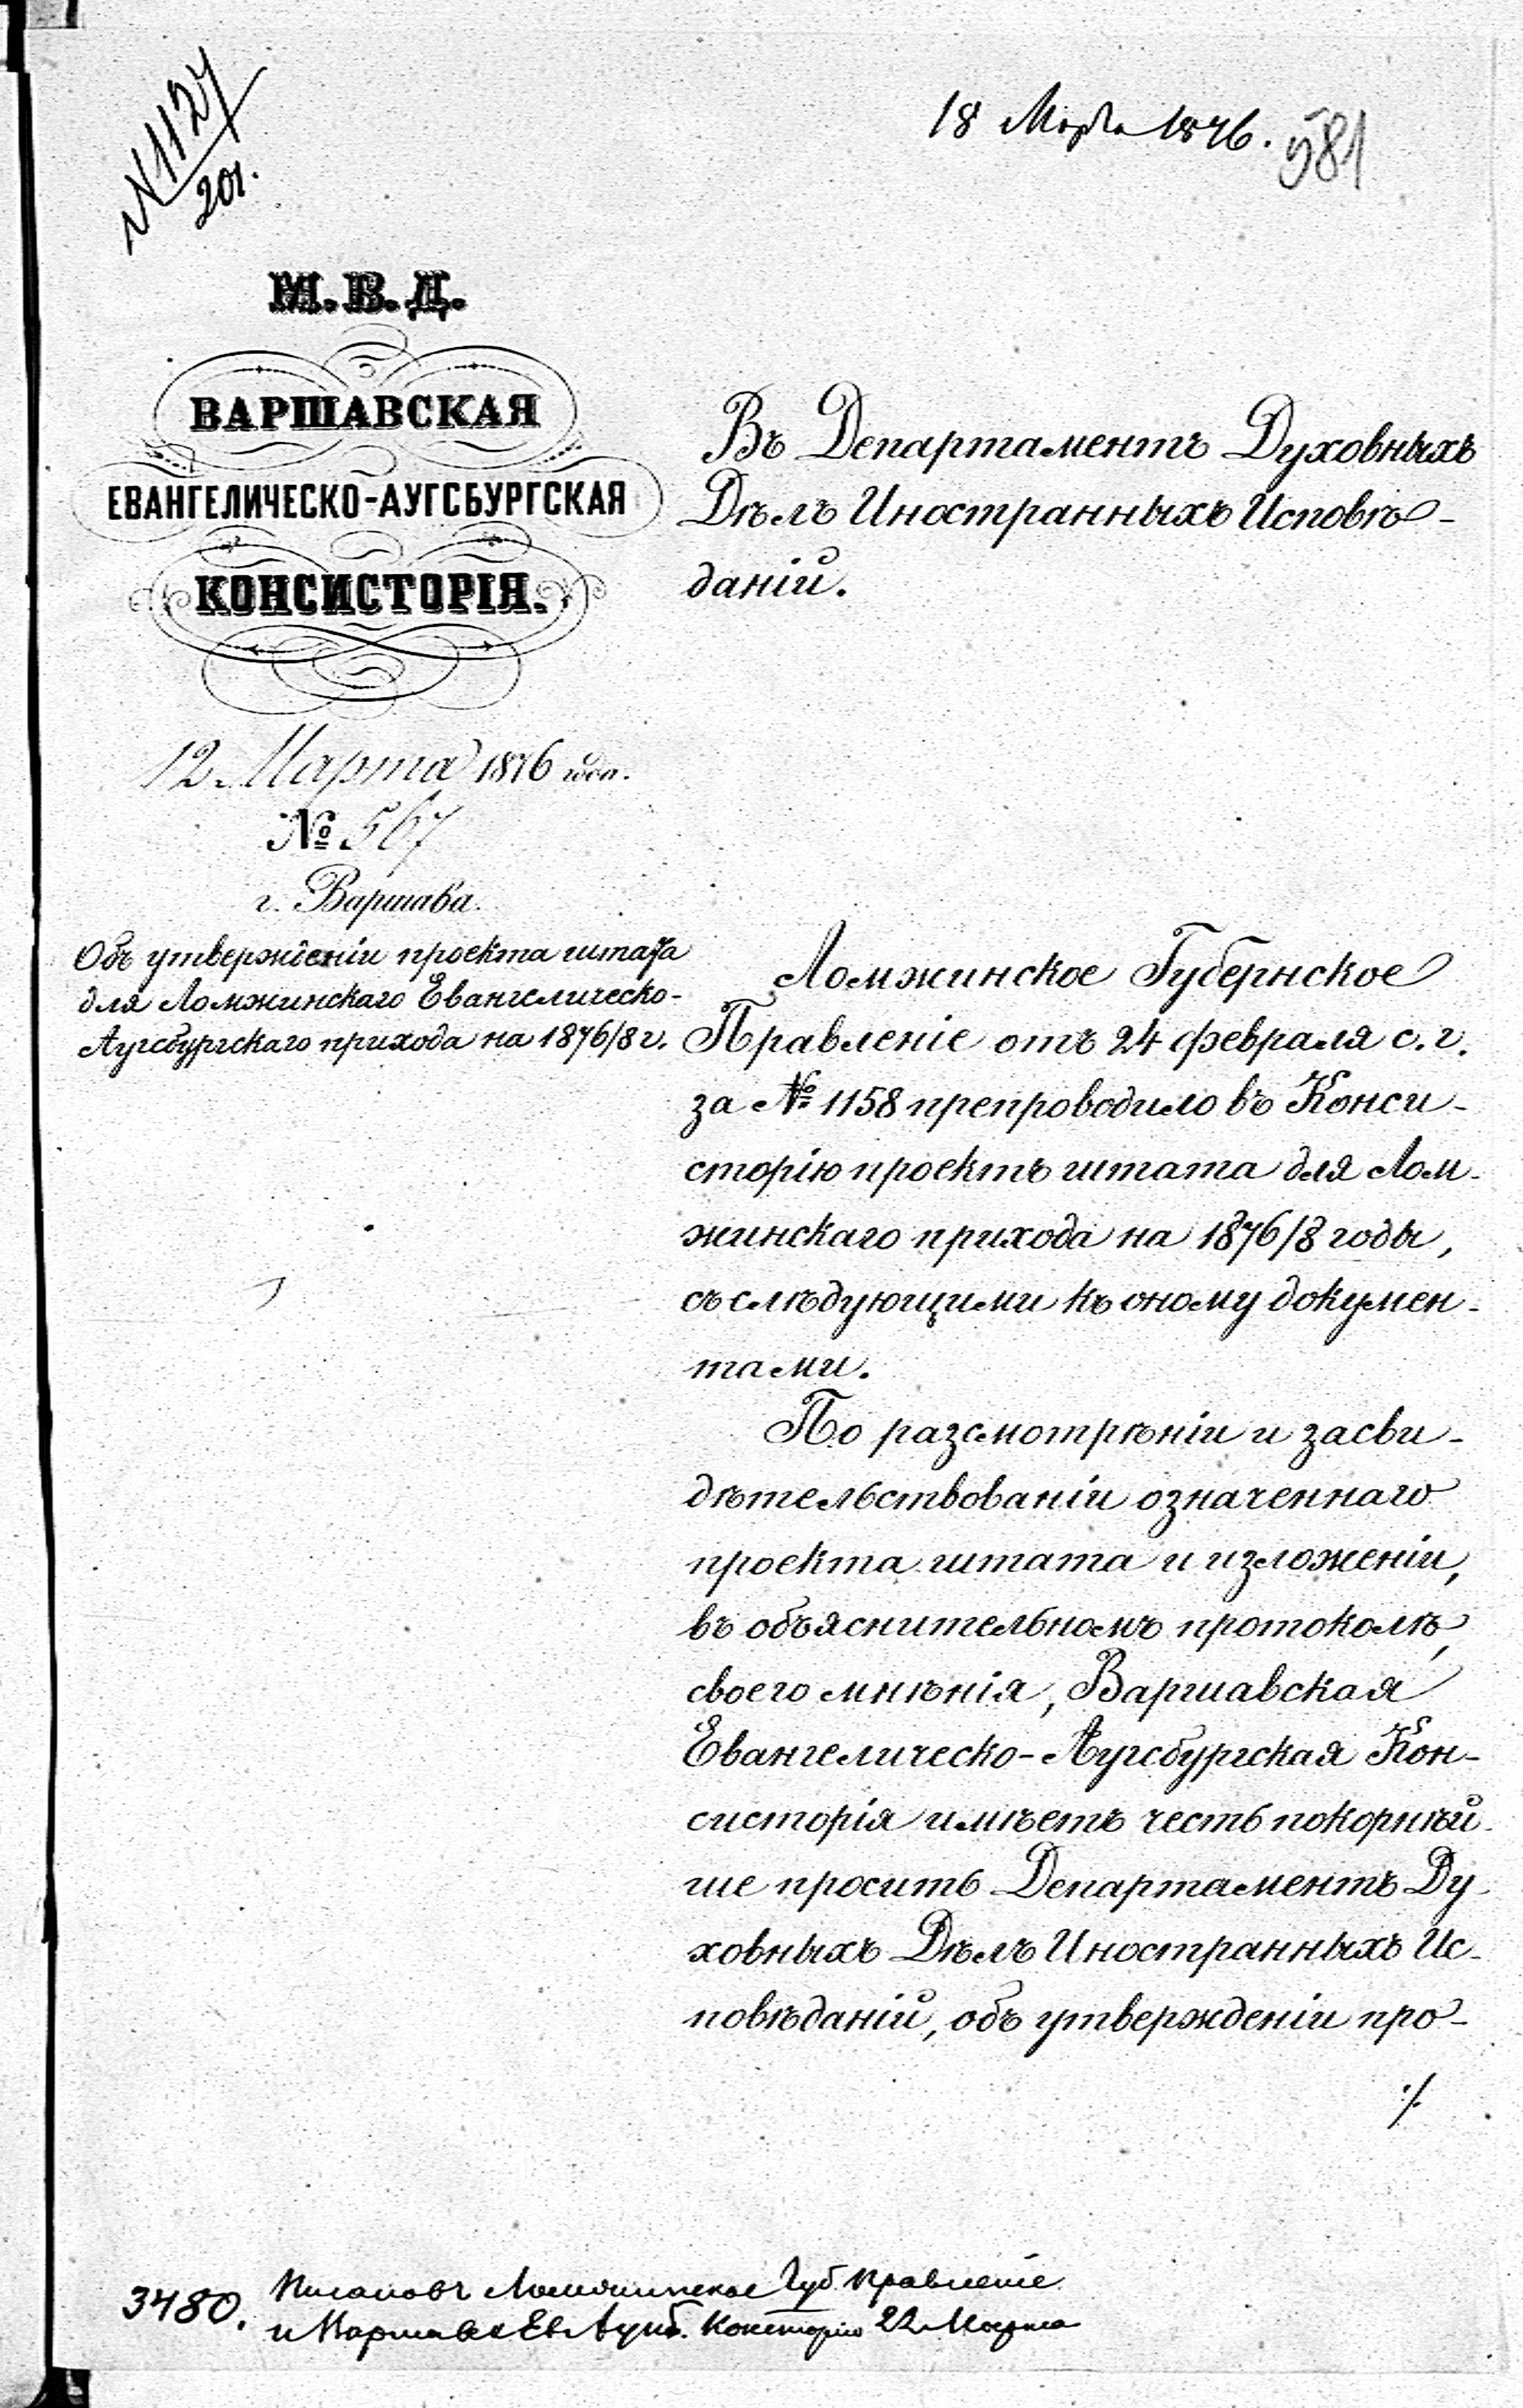 № 1127
201.
18 Марта 1876.
581
М.В.Д.
ВАРШАВСКАЯ
ЕВАНГЕЛИЧЕСКО-АУГСБУРГСКАЯ
КОНСИСТОРІЯ.
12 Марта 1876 года.
№ 567
г. Варшава.
Объ утвержденіи проекта штата
для Ломжинскаго Евангелическо-
Аугсбургскаго прихода на 1876/8 г.
Въ Департаментъ Духовныхъ
Дѣлъ Иностранныхъ Исповѣ-
даній.
Ломжинское Губернское
Правленіе отъ 24 февраля с. г.
за № 1158 препроводило въ Конси-
сторію проектъ штата для Лом-
жинскаго прихода на 1876/8 годы,
съ слѣдующими къ оному докумен-
тами.
По разсмотрѣніи и засви-
дѣтельствованіи означеннаго
проекта штата и изложеніи,
въ объяснительномъ протоколѣ,
своего мнѣнія, Варшавская
Евангелическо-Аугсбургская Кон-
систорія имѣетъ честь покорнѣй-
ше просить Департаментъ Ду-
ховныхъ Дѣлъ Иностранныхъ Ис-
повѣданій, объ утвержденіи про-
./.
3480.
Ломжинское Губ. Правленіе
и Варшавск Ев. Аугсб. Консторію 22 Марта